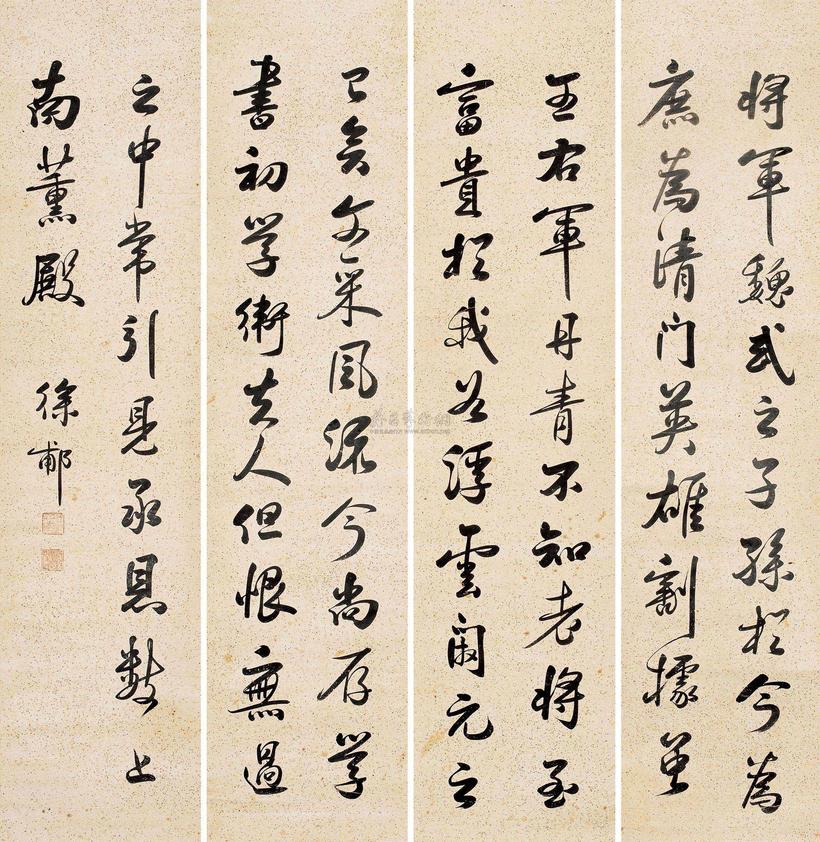 將軍魏武之子孫於今為
庶為清门英雄割據雖
已矣文采風流今尚存學
書初學衛夫人但恨無過
王右軍丹青不知老將至
富貴於我如浮雲開元之
之中常引見承恩數上
南薰殿 徐郙